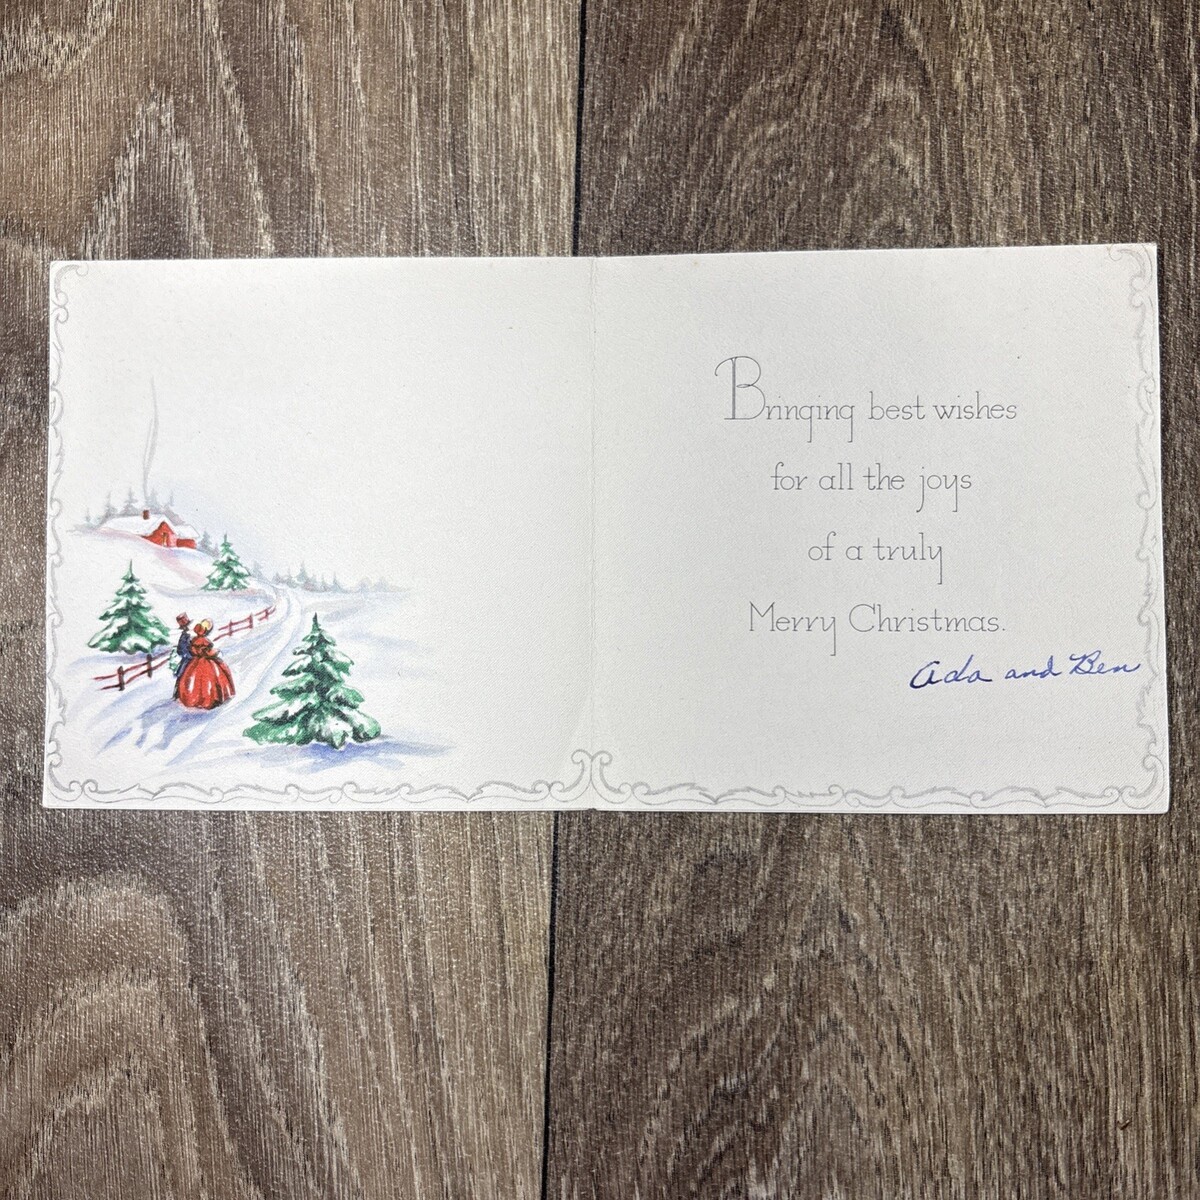 Bringing best wishes
for all the joys
of a truly
Merry Christmas.
Ada and Ben